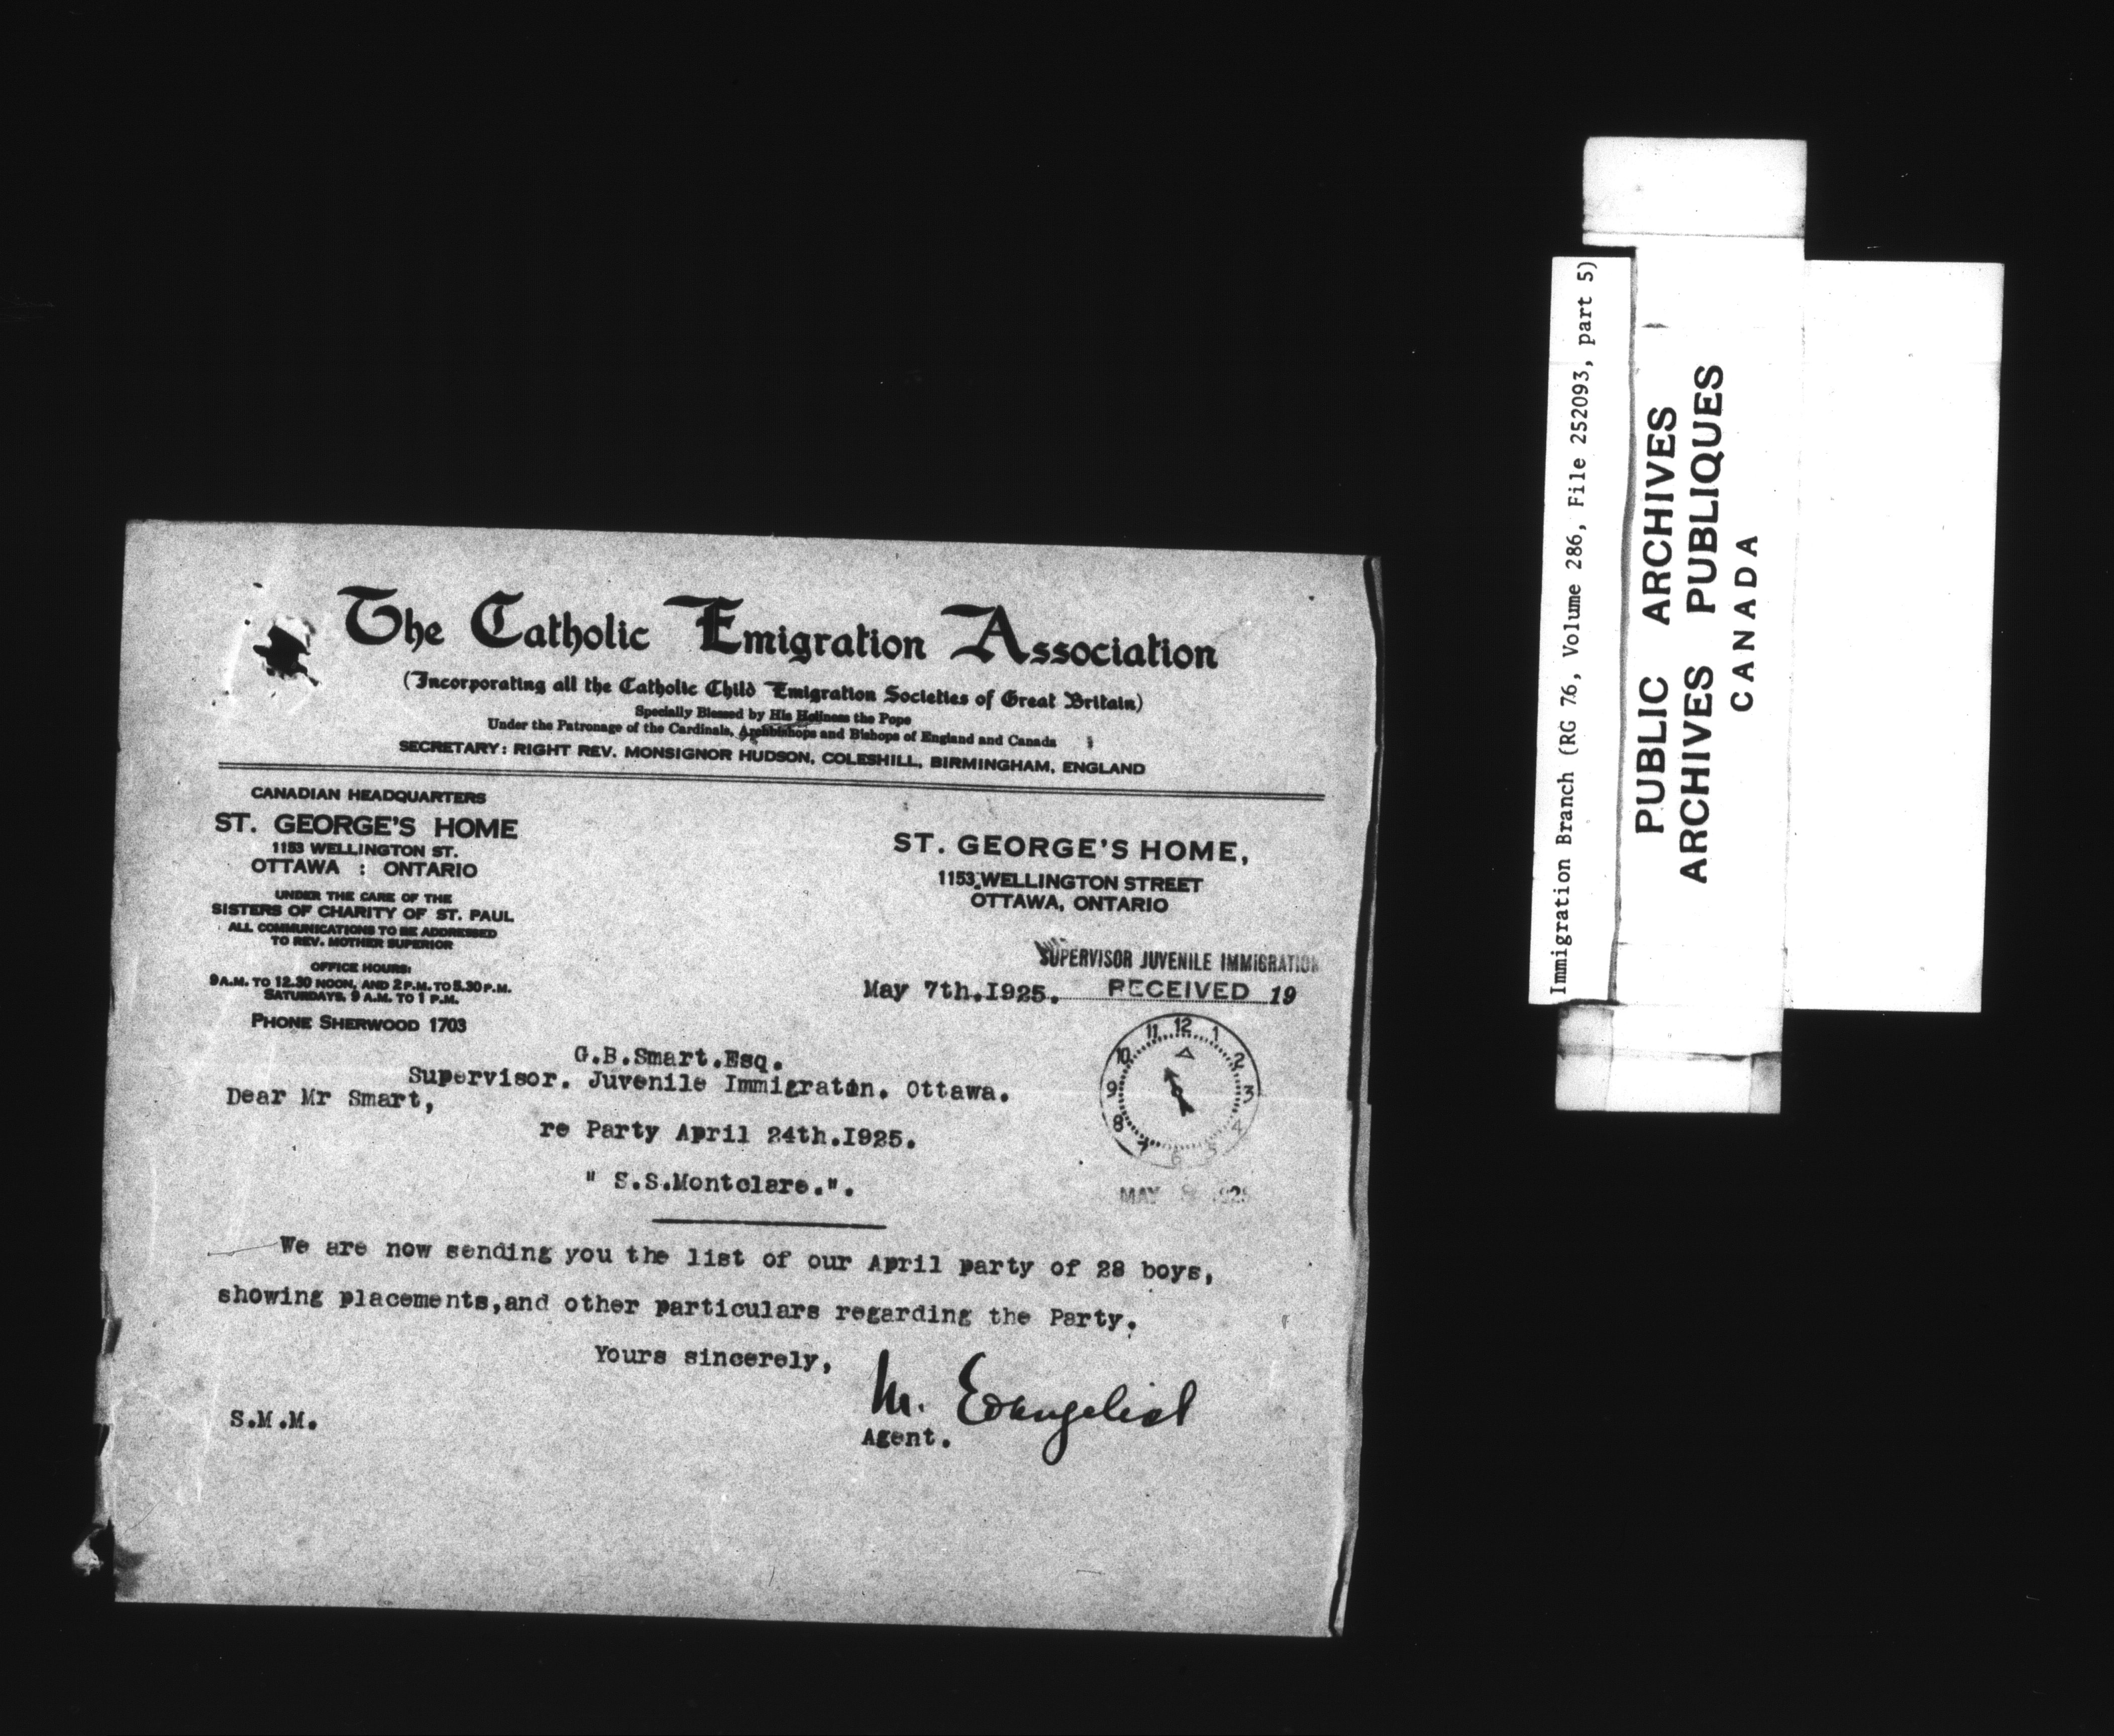 The Catholic Emigration Association
(Incorporating all the Catholic Child Emigration Societies of Great Britain)
Specially Blessed by His Holiness the Pope
Under the Patronage of the Cardinals, Archbishops and Bishops of England and Canada
SECRETARY: RIGHT REV. MONSIGNOR HUDSON, COLESHILL, BIRMINGHAM, ENGLAND
CANADIAN HEADQUARTERS
ST. GEORGE'S HOME
1153 WELLINGTON ST.
OTTAWA : ONTARIO
UNDER THE CARE OF THE
SISTERS OF CHARITY OF ST. PAUL
ALL COMMUNICATIONS TO BE ADDRESSED
TO REV. MOTHER SUPERIOR
OFFICE HOURS:
9 A.M. TO 12.30 NOON, AND 2 P.M. TO 5.30 P.M.
SATURDAYS, 9 A.M. TO 1 P.M.
PHONE SHERWOOD 1703
ST. GEORGE'S HOME,
1153 WELLINGTON STREET
OTTAWA, ONTARIO
SUPERVISOR JUVENILE IMMIGRATION
May 7th.I925. RECEIVED 19
12 1 2 3 4 5 6 7 8 9 10 11
MAY 1925
G.B.Smart.Esq.
Supervisor. Juvenile Immigraton. Ottawa.
Dear Mr Smart,
re Party April 24th.I925.
" S.S.Montclare.".
We are now sending you the list of our April party of 28 boys,
showing placements,and other particulars regarding the Party.
Yours sincerely,
M. Evangelist
Agent.
S.M.M.
Immigration Branch (RG 76, Volume 286, File 252093, part 5)
PUBLIC ARCHIVES
ARCHIVES PUBLIQUES
CANADA